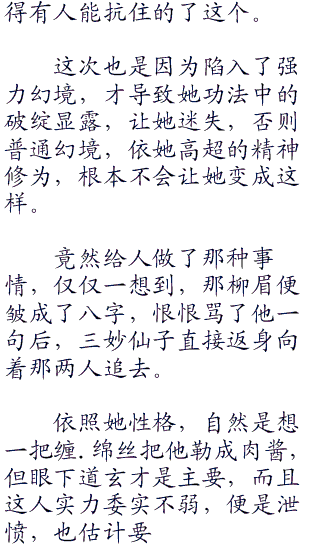 得有人能抗住的了这个。
这次也是因为陷入了强
力幻境，才导致她功法中的
破绽显露，让她迷失，否则
普通幻境，依她高超的精神
修为，根本不会让她变成这
样。
竟然给人做了那种事
情，仅仅一想到，那柳眉便
皱成了八字，恨恨骂了他一
句后，三妙仙子直接返身向
着那两人追去。
依照她性格，自然是想
一把缠.绵丝把他勒成肉酱，
但眼下道玄才是主要，而且
这人实力委实不弱，便是泄
愤，也估计要